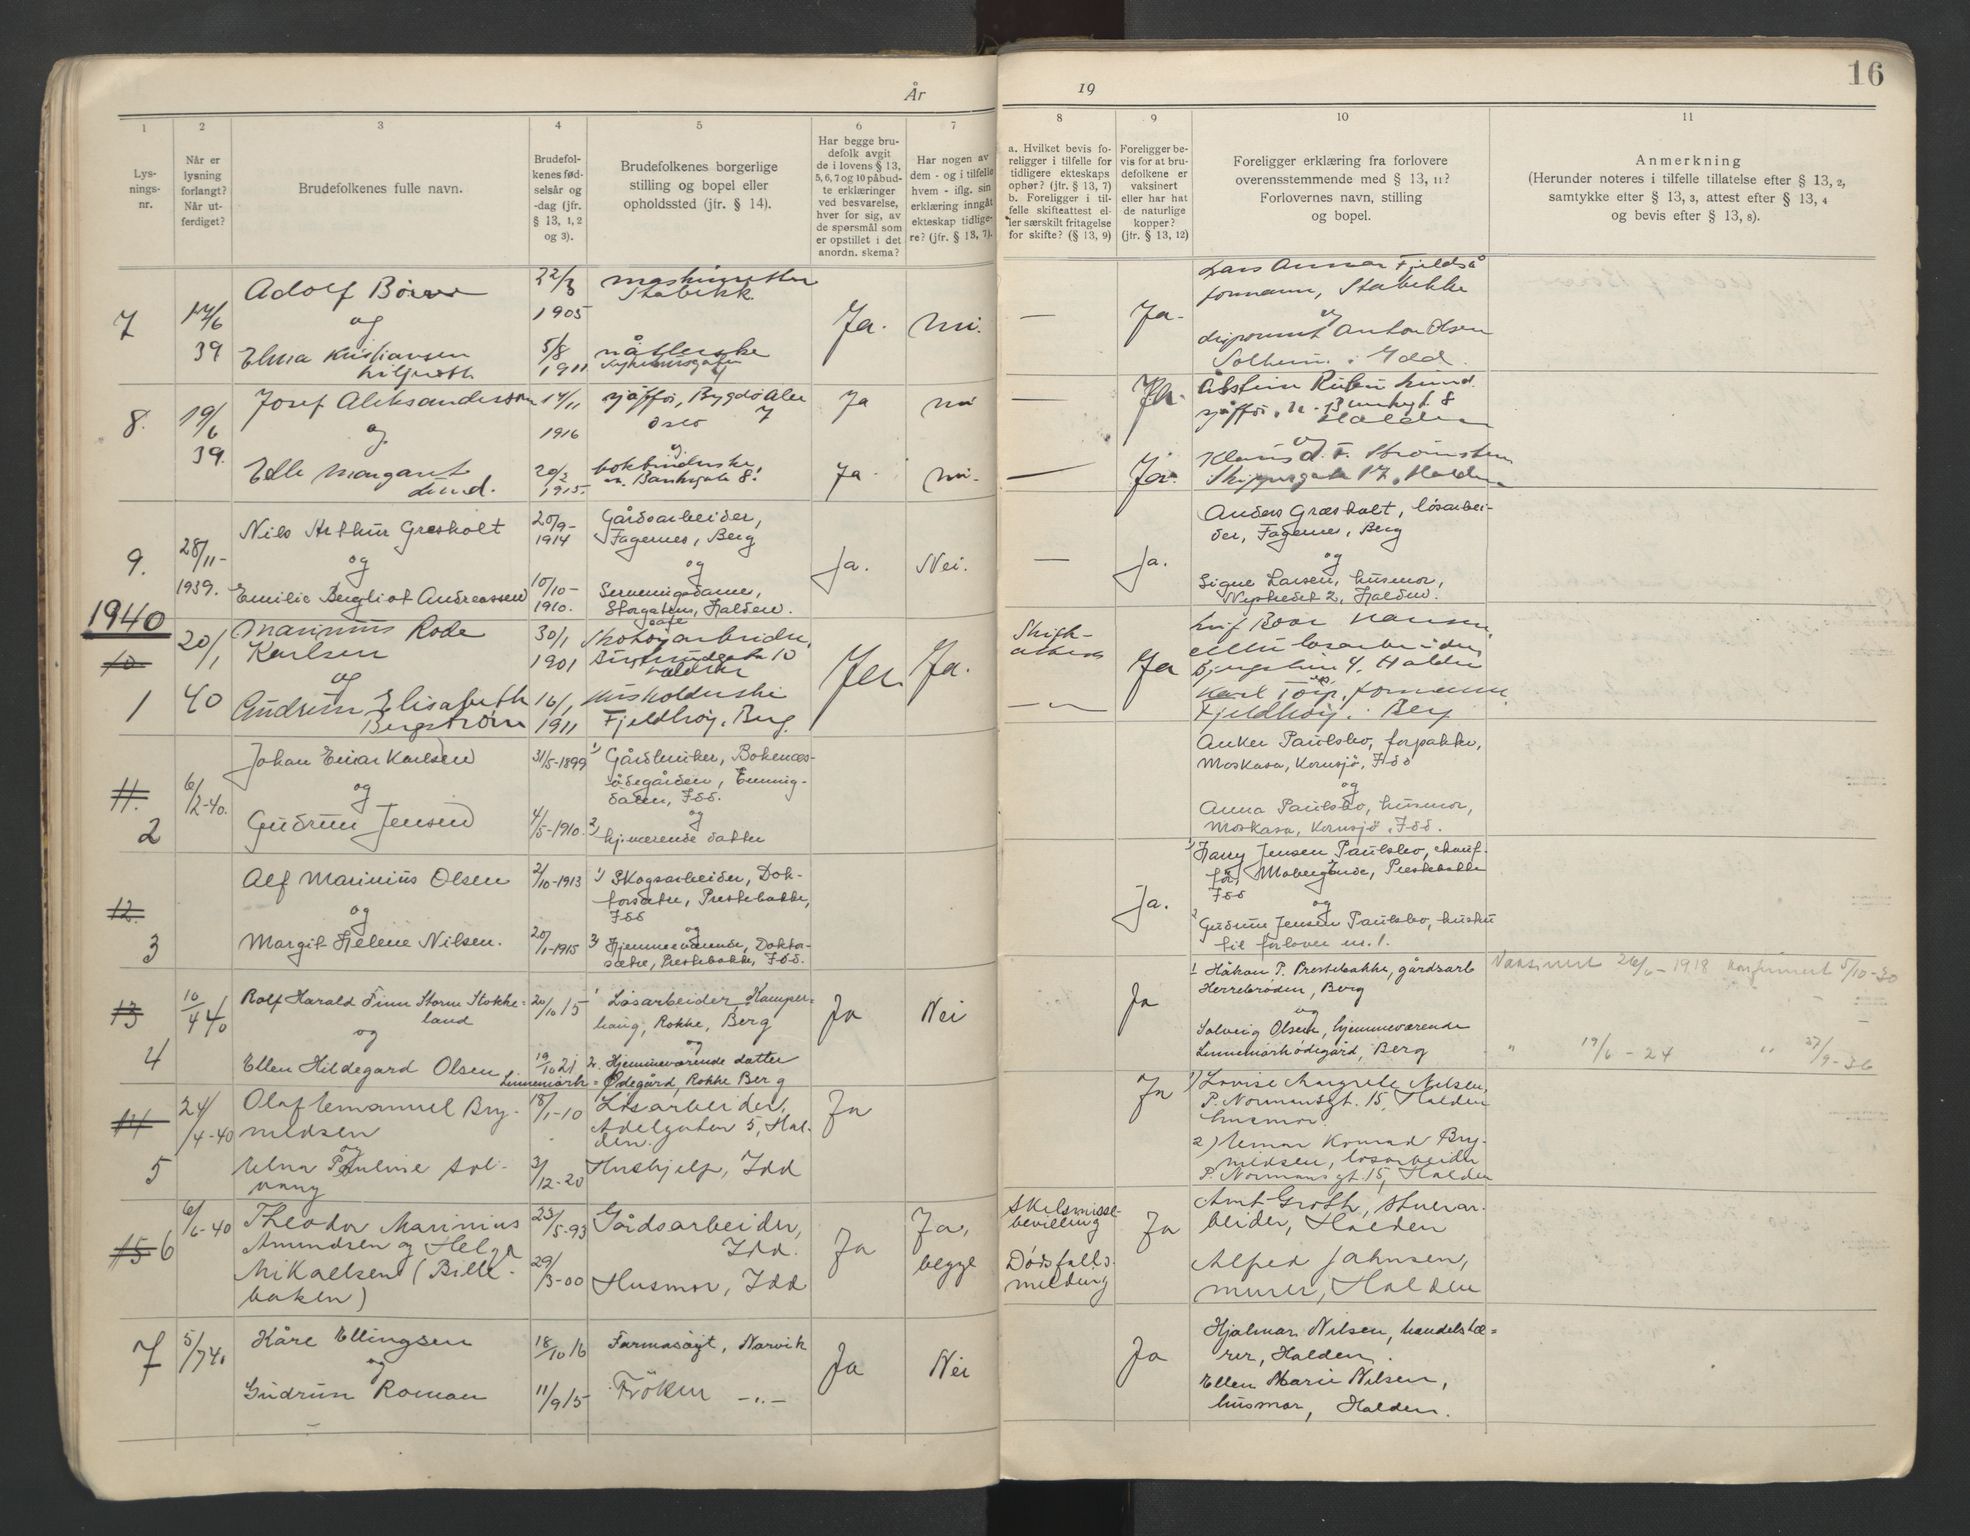 År
19
16
1
2
3
4
5
6
7
8
9
10
11
Lys-
nings-
nr.
Når er
lysning
forlangt?
Når ut-
ferdiget?
Brudefolkenes fulle navn.
Brudefol-
kenes fød-
selsår og
-dag (jfr.
§ 13, 1, 2
og 3).
Brudefolkenes borgerlige
stilling og bopel eller
opholdssted (jfr. § 14).
Har begge bru-
defolk avgit
de i lovens § 13,
5, 6, 7 og 10 påbud-
te erklæringer
ved besvarelse,
hver for sig, av
de spørsmål som
er opstillet i det
anordn. skema?
Har nogen av
dem - og i tilfelle
hvem - iflg. sin
erklæring inngåt
ekteskap tidlige-
re? (jfr. § 13, 7).
a. Hvilket bevis fo-
religger i tilfelle for
tidligere ekteskaps
ophør? (jfr. § 13, 7)
b. Foreligger i til-
felle skifteattest el-
ler særskilt fritagelse
for skifte? (§ 13, 9)
Foreligger be-
vis for at bru-
defolkene er
vaksinert
eller har hat
de naturlige
kopper?
(jfr. § 13, 12)
Foreligger erklæring fra forlovere
overensstemmende med § 13, 11?
Forlovernes navn, stilling
og bopel.
Anmerkning
(Herunder noteres i tilfelle tillatelse efter § 13, 2,
samtykke efter § 13, 3, attest efter § 13, 4
og bevis efter § 13, 8).
7
17/6
39
Adolf
og
Elna Kristiansen
22/3
1905
5/8
1911
Stabekk
Ja.
nei.
—
Ja.
formann, Stabekke
og
Anton Olsen
Solheim i Idd.
8.
19/6
39.
Josef Aleksandersen
og
Elle Margaret
Lund.
14/11
1916
20/2
1915.
sjåffør, Bygdø Alle
Oslo 7
og
bokbinderske,
Ja
nei
Ja.
nei.
—
Ja.
—
Ja.
Rubin Lund.
sjåffør, 8
Halden
og
Skippergata 17, Halden
9.
28/11-
1939.
Nils Arthur Gresholt
og
Emilie Bergliot Andreassen
20/9-
1914
10/10-
1910.
Gårdsarbeider,
Fagernes, Berg
og
Serveringsdame,
Storgatens cafe, Halden.
Ja.
Nei.
—
Ja.
Anders Græsholt, løsarbei-
der, Fagernes, Berg
og
Signe Larsen, husmor,
Halden.
1940
10
1
20/1
40
Marinius Rode
Karlsen
og
Gudrun Elisabeth
Bergstrøm
30/1
1901
16/1
1911
Skotøyarbeider,
10
Halden
Husholderske
Fjeldhøy, Berg.
Ja.
Ja.
Skifte-
attest
Ja
Leif Hansen,
løsarbeider,
4, Halden
og
Karl formann
Fjeldhøy, Berg
11.
2
6/2-40.
Johan Einar Karlsen
og
Gudrun Jensen
31/5-1899
4/5-1910.
1) Gårdbruker, Bokenæs-
ødegården, Enning-
dalen, Idd.
og
2) hj.værende datter
Anker Paulsbo, forpakter,
Moskasa, Kornsjø, Idd
og
Anna Paulsbo, husmor,
Moskasa, Kornsjø, Idd.
12.
3
Alf Marinius Olsen
og
Margit Helene Nilsen.
2/10-1913
20/1-1915
1) Skogsarbeider, Dok-
torsætre, Prestebakke,
Idd
og
2) Hjemmeværende, Doktor-
sætre, Prestebakke, Idd.
Ja.
1) Harry Jensen Paulsbo, chauf-
før, Prestebakke
Idd
og
2 Gudrun Jensen Paulsbo, hustru
til forlover nr. 1.
13
4
10/4 40
Rolf Harald Finn Storm Stokke-
land
og
Ellen Hildegard Olsen
20/10 15
19/10 21
1 Løsarbeider Kamper-
haug, Rokke, Berg
og
2. Hjemmeværende datter
Linnemark = Ødegård, Rokke Berg
Ja
Nei
Ja
1 Håkon P. Prestebakke, gårdsarb
Herrebrøden, Berg
og
Solveig Olsen, hjemmeværende
Linnemark ødegård, Berg
Vaksinert 26/6-1918 konfirmert 5/10-30
" 19/6-24 " 27/9-36
14
5
24/4-40
Olaf Emanuel Bry-
nildsen
og
Edna Pauline Sol-
vang
18/1-10
3/12-20
Løsarbeider,
Adelgaten 5, Hal-
den.
Hushjelp, Idd
Ja
Ja
1) Lovise Margrete Nilsen,
P. Normansgt. 15, Halden
husmor.
2) Einar Konrad Bry-
nildsen, løsarbeider
P. Normansgt. 15, Halden
15 6
6/6-40
Theodor Marinius
Amundsen og Helga
Mikaelsen (Bille-
baken)
23/5-93
29/3-00
Gårdsarbeider,
Idd.
Husmor, Idd
Ja
Ja,
begge
Skilsmisse-
bevilling
Dødsfalls-
melding
Ja
Arnt Groth, stuerar-
beider, Halden
Alfred Jahnsen,
murer, Halden
7
5/7 40
Kåre Ellingsen
og
Gudrun Roman
18/10 16
11/9 15
Farmasøyt, Narvik
Frøken —"—
Ja
Nei
Ja
Hjalmar Nilsen, handelslæ-
rer, Halden.
Ellen Marie Nilsen,
husmor, Halden.